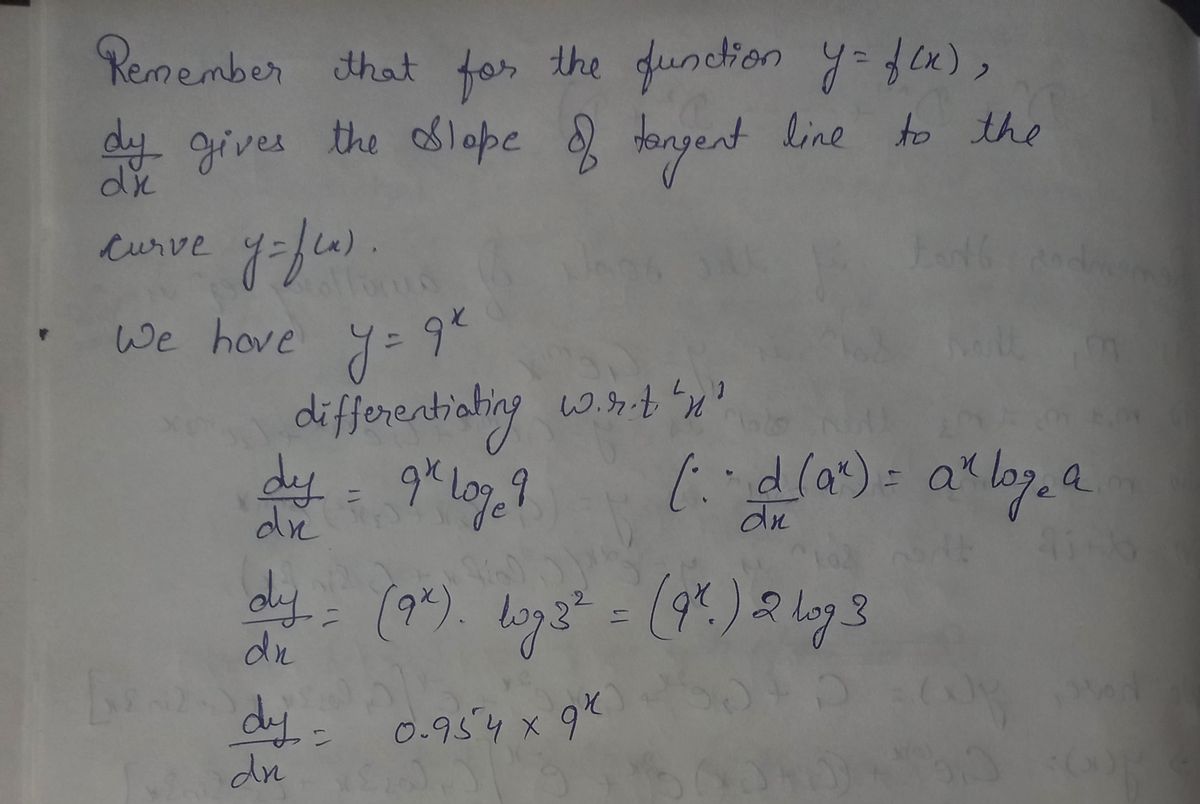 Remember that for the function y = f(x),
dy/dx gives the slope of tangent line to the
curve y=f(x).
We have y = 9^x
differentiating w.r.t. 'x'
dy/dx = 9^x log_e 9 (∵ d/dx (a^x) = a^x log_e a
dy/dx = (9^x). log 3^2 = (9^x.) 2 log 3
dy/dx = 0.954 x 9^x